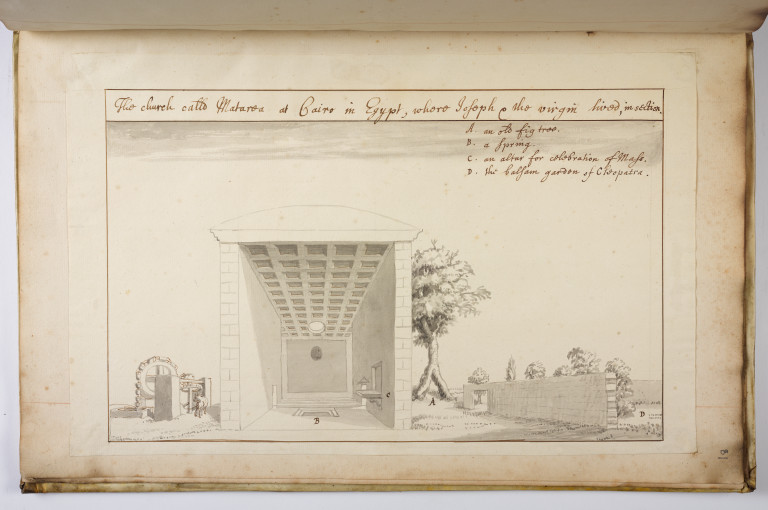 The church calld Matarea at Cairo in Egypt, where Joseph & the virgin lived, in section.
A. an old fig tree.
B. a spring.
C. an altar for celebration of Mass.
D. the balsam garden of Cleopatra.
C
A
B
D